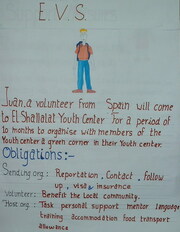 E.V.S.
Juan, a volunteer from Spain will come
to El Shallalat Youth Center for a period of
10 months to organise with members of the
Youth center a green corner in their Youth center.
Obligations:-
Sending org: Reportation, Contact, follow
up, visa, insurance
Volunteer: Benefit the local community.
Host org: Task personal support mentor language
training accommodation food transport
allowance